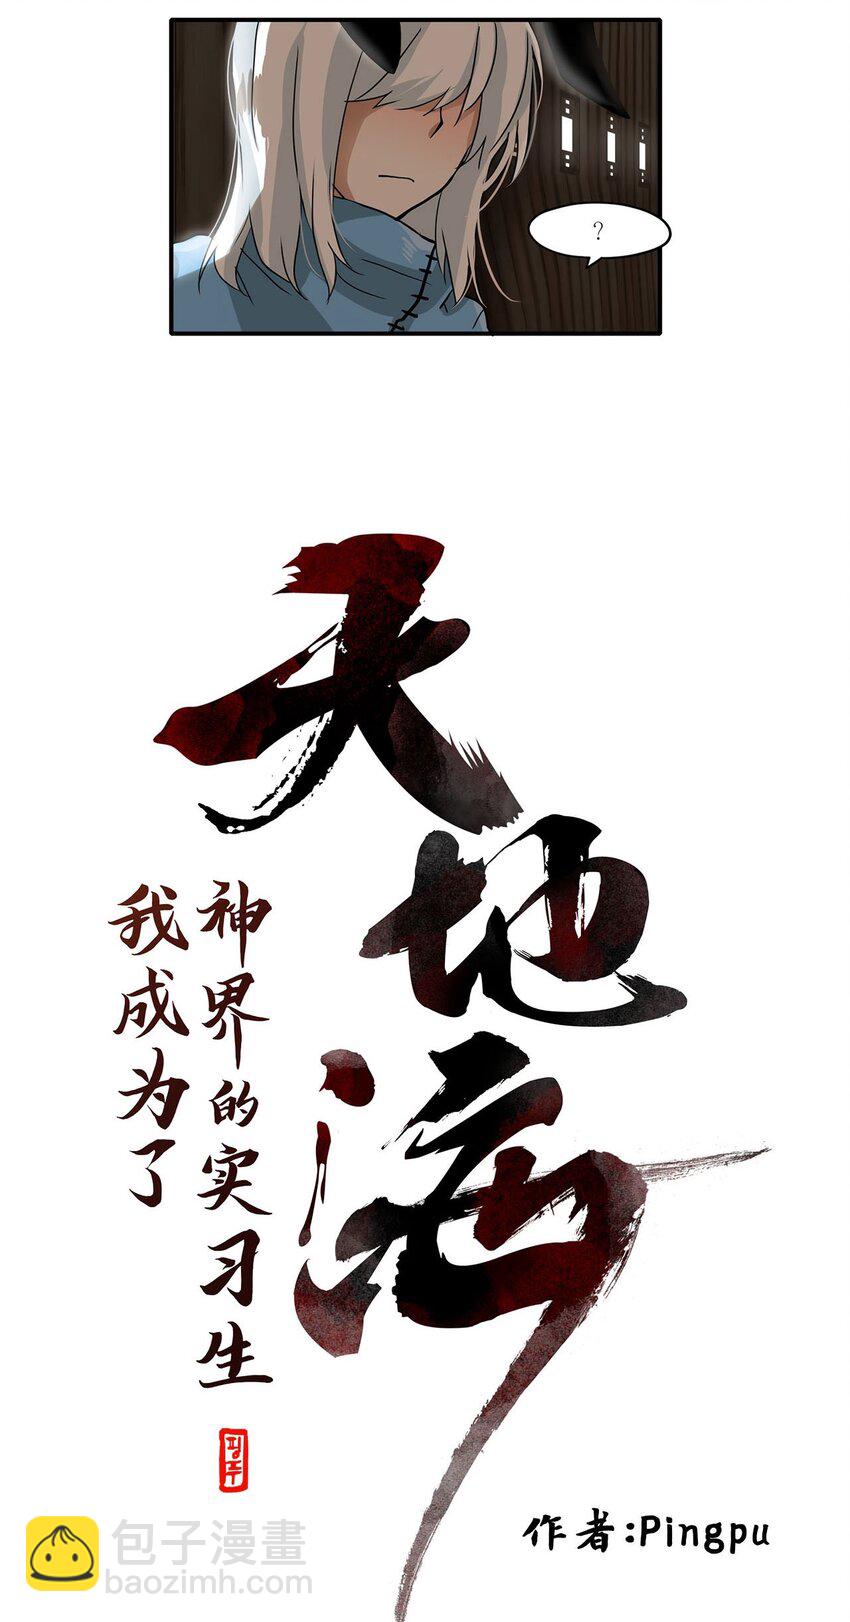 ?
天地海
我成为了
神界的实习生
핑푸
作者:Pingpu
包子漫畫
baozimh.com